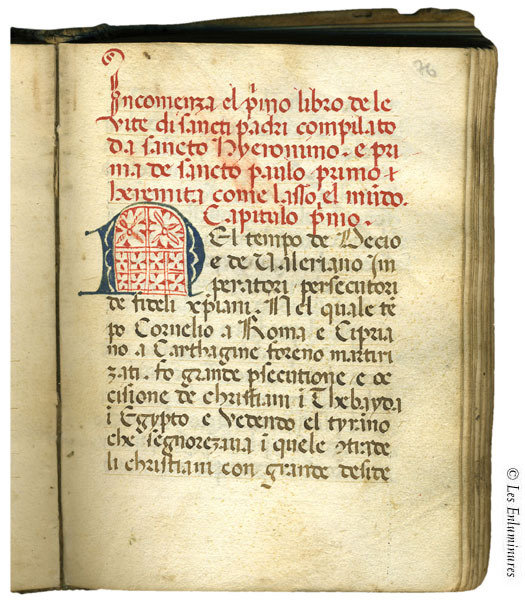 76
Incomenza el p̃mo libro de le
vite di sancti padri compilato
da sancto Hyeronimo. e pri
ma de sancto paulo primo
heremita come lasso el mũdo.
Capitulo p̃mo.
NEl tempo de Decio
e de Valeriano im
peratori persecutori
de fideli xp̃iani. Nel quale tẽ
po Cornelio a Roma e Cipria
no a Carthagine foreno martiri
zati. fo grande ꝑsecutione e oc
cisione de christiani ĩ Thebayda
ĩ Egypto e Vedendo el tyrãno
che segnorezaua ĩ quele ꝯtrade
li christiani con grande deside
© Les Enluminures